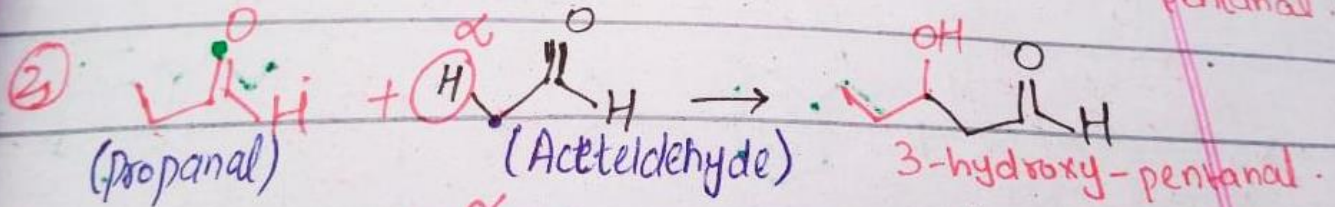 2)
O
α
O
OH
O
H
+
H
H
→
H
(Propanal)
(Acetteldehyde)
3-hydroxy-pentanal.